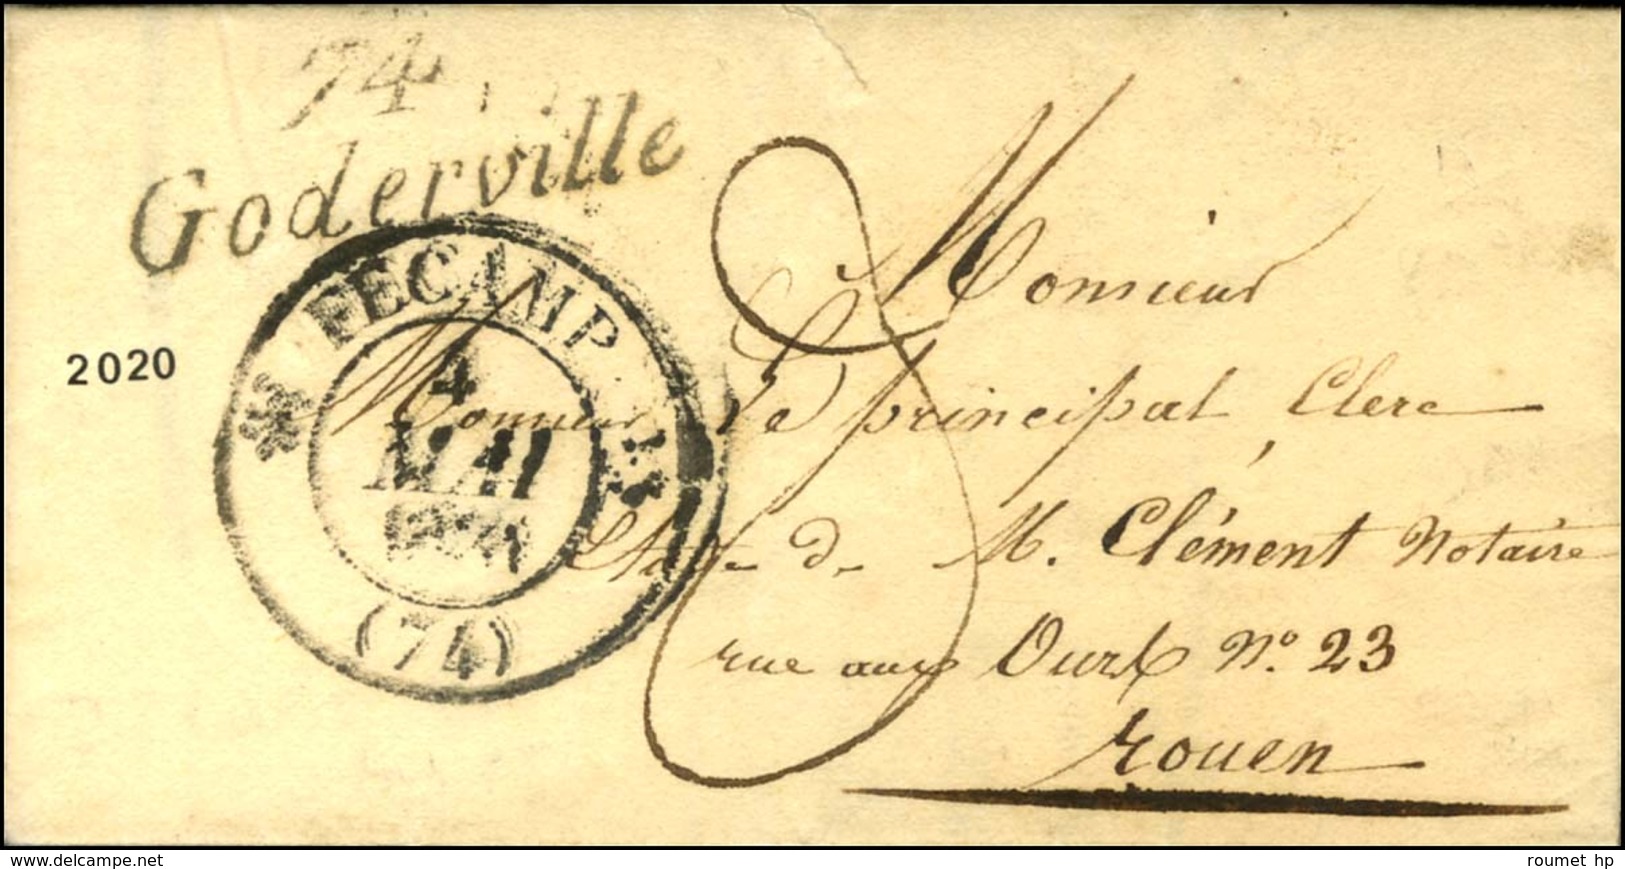 74
Goderville
FECAMP
4
MAI
(74)
2020
Monsieur
Monsieur Le principal Clerc
de M. Clément Notaire
rue aux Ours N° 23
Rouen
www.delcampe.net
roumet hp